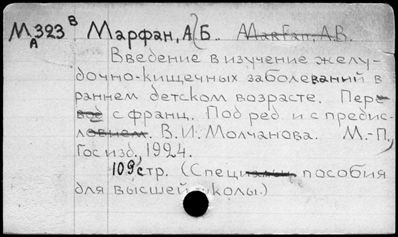 М 323 В Марфан, А.Б. Marfan, A.B.
А
Введение в изучение желу-
дочно-кищечных заболеваний в
раннем детском возрасте. Пере
вод с франц. Под ред. и с предис-
ловием В.И. Молчанова. М.-П.,
Госизд., 1924.
109 стр. (Специальн. пособия
для высшей школы.)